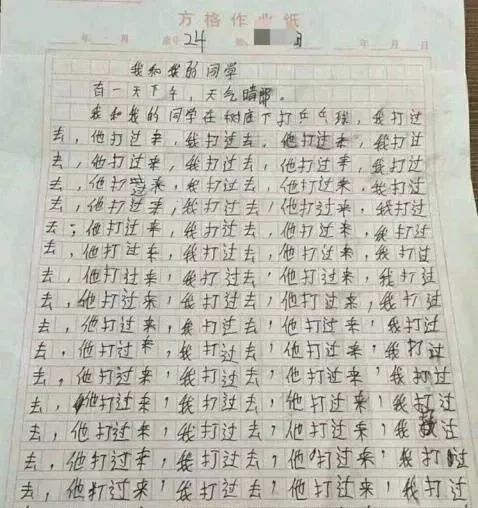 方格作业纸
年 月 24 月 日
我和我的同学
有一天下午，天气晴朗。
我和我的同学在树底下打乒乓球，我打过
去，他打过来，我打过去，他打过来，我打过
去，他打过来，我打过去，他打过来，我打过
去，他打过来，我打过去，他打过来，我打过
去，他打过来，我打过去，他打过来，我打过
去，他打过来，我打过去，他打过来，我打过
去，他打过来，我打过去，他打过来，我打过
去，他打过来，我打过去，他打过来，我打过
去，他打过来，我打过去，他打过来，我打过
去，他打过来，我打过去，他打过来，我打过
去，他打过来，我打过去，他打过来，我打过
去，他打过来，我打过去，他打过来，我打过
去，他打过来，我打过去，他打过来，我打过
去，他打过来，我打过去，他打过来，我过
去，他打过来，我打过去，他打过来，我打过
去，他打过来，我打过去，他打过来，我打过